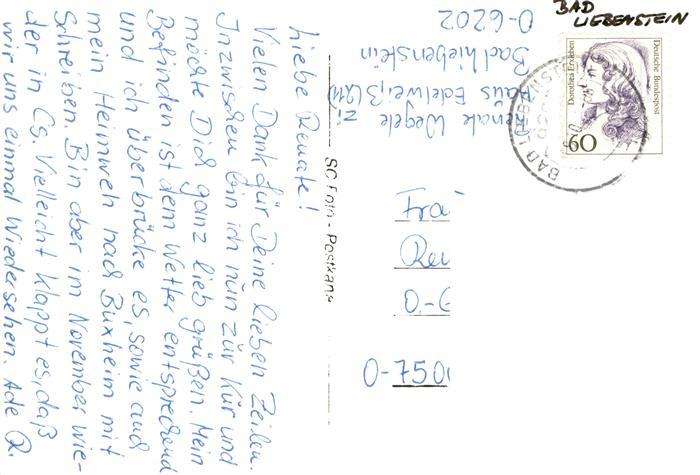 Liebe Renate!
Vielen Dank für Deine lieben Zeilen.
Inzwischen bin ich nun zur Kur und
möchte Dich ganz lieb grüßen. Mein
Befinden ist dem Wetter entsprechend
und ich überbrücke es, sowie auch
mein Heimweh nach Buxheim mit
Schreiben. Bin aber im November wie-
der in Cs. Vielleicht klappt es, daß
wir uns einmal Wiedersehen. Ade R.
SC Foto - Postkarte
Renate Wegele
Haus Edelweiß
Bad Liebenstein
O-6202
BAD
LIEBENSTEIN
Deutsche Bundespost
Dorothea Erxleben
60
BAD LIEBENSTEIN
Fra
Ren
O-750